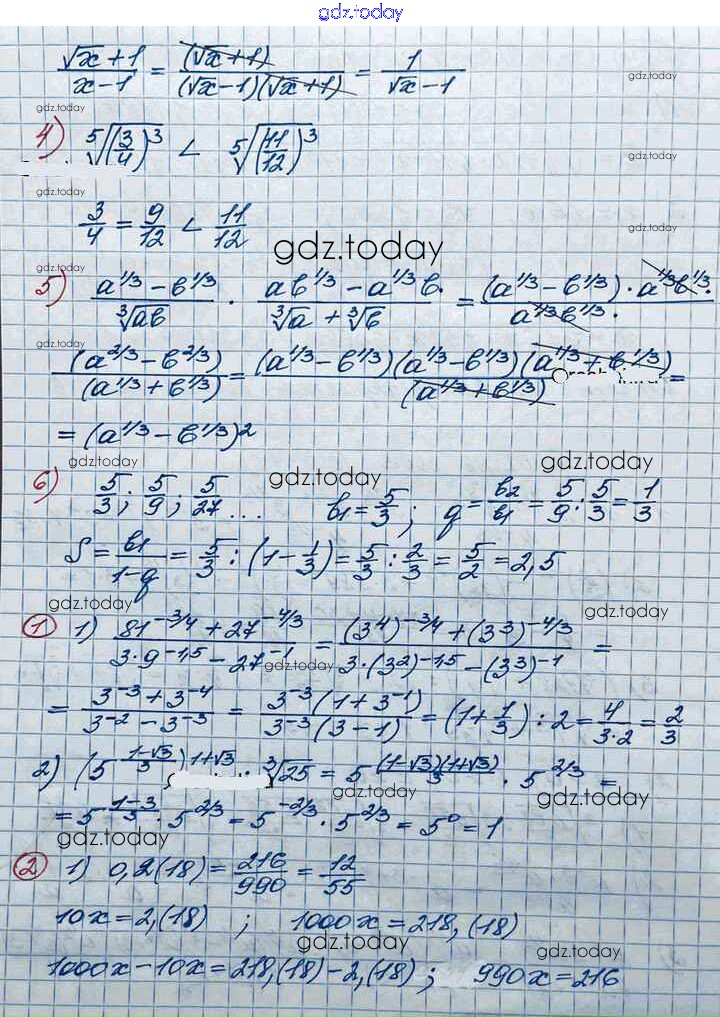 gdz.today
(√x + 1)/(x − 1) = (√x + 1)/((√x − 1)(√x + 1)) = 1/(√x − 1)
gdz.today
gdz.today
4) ⁵√((3/4)³) < ⁵√((11/12)³)
gdz.today
gdz.today
3/4 = 9/12 < 11/12
gdz.today
gdz.today
gdz.today
5) (a^1/3 − b^1/3)/∛(ab) · (ab^1/3 − a^1/3 b)/(∛a + ∛b) = ((a^1/3 − b^1/3) · a^1/3 b^1/3 ·)/(a^1/3 b^1/3 ·)
gdz.today
(a^2/3 − b^2/3)/(a^1/3 + b^1/3) = ((a^1/3 − b^1/3)(a^1/3 − b^1/3)(a^1/3 + b^1/3))/(a^1/3 + b^1/3) =
= (a^1/3 − b^1/3)²
gdz.today
gdz.today
gdz.today
6) 5/3; 5/9; 5/27 ... b₁ = 5/3; q = b₂/b₁ = 5/9 : 5/3 = 1/3
S = b₁/(1−q) = 5/3 : (1 − 1/3) = 5/3 : 2/3 = 5/2 = 2,5
gdz.today
gdz.today
① 1) (81^−3/4 + 27^−4/3)/(3·9^−1,5 − 27^−1) = ((3⁴)^−3/4 + (3³)^−4/3)/(3·(3²)^−1,5 − (3³)^−1) =
gdz.today
= (3^−3 + 3^−4)/(3^−2 − 3^−3) = (3^−3(1 + 3^−1))/(3^−3(3 − 1)) = (1 + 1/3) : 2 = 4/(3·2) = 2/3
2) (5^((1−√3)/3))^(1+√3) ∛25 = 5^((1−√3)(1+√3)/3) · 5^2/3 =
gdz.today
gdz.today
= 5^((1−3)/3) · 5^2/3 = 5^−2/3 · 5^2/3 = 5⁰ = 1
gdz.today
② 1) 0,2(18) = 216/990 = 12/55
10x = 2,(18) ; 1000x = 218,(18)
gdz.today
gdz.today
1000x − 10x = 218,(18) − 2,(18) ; 990x = 216
gdz.today